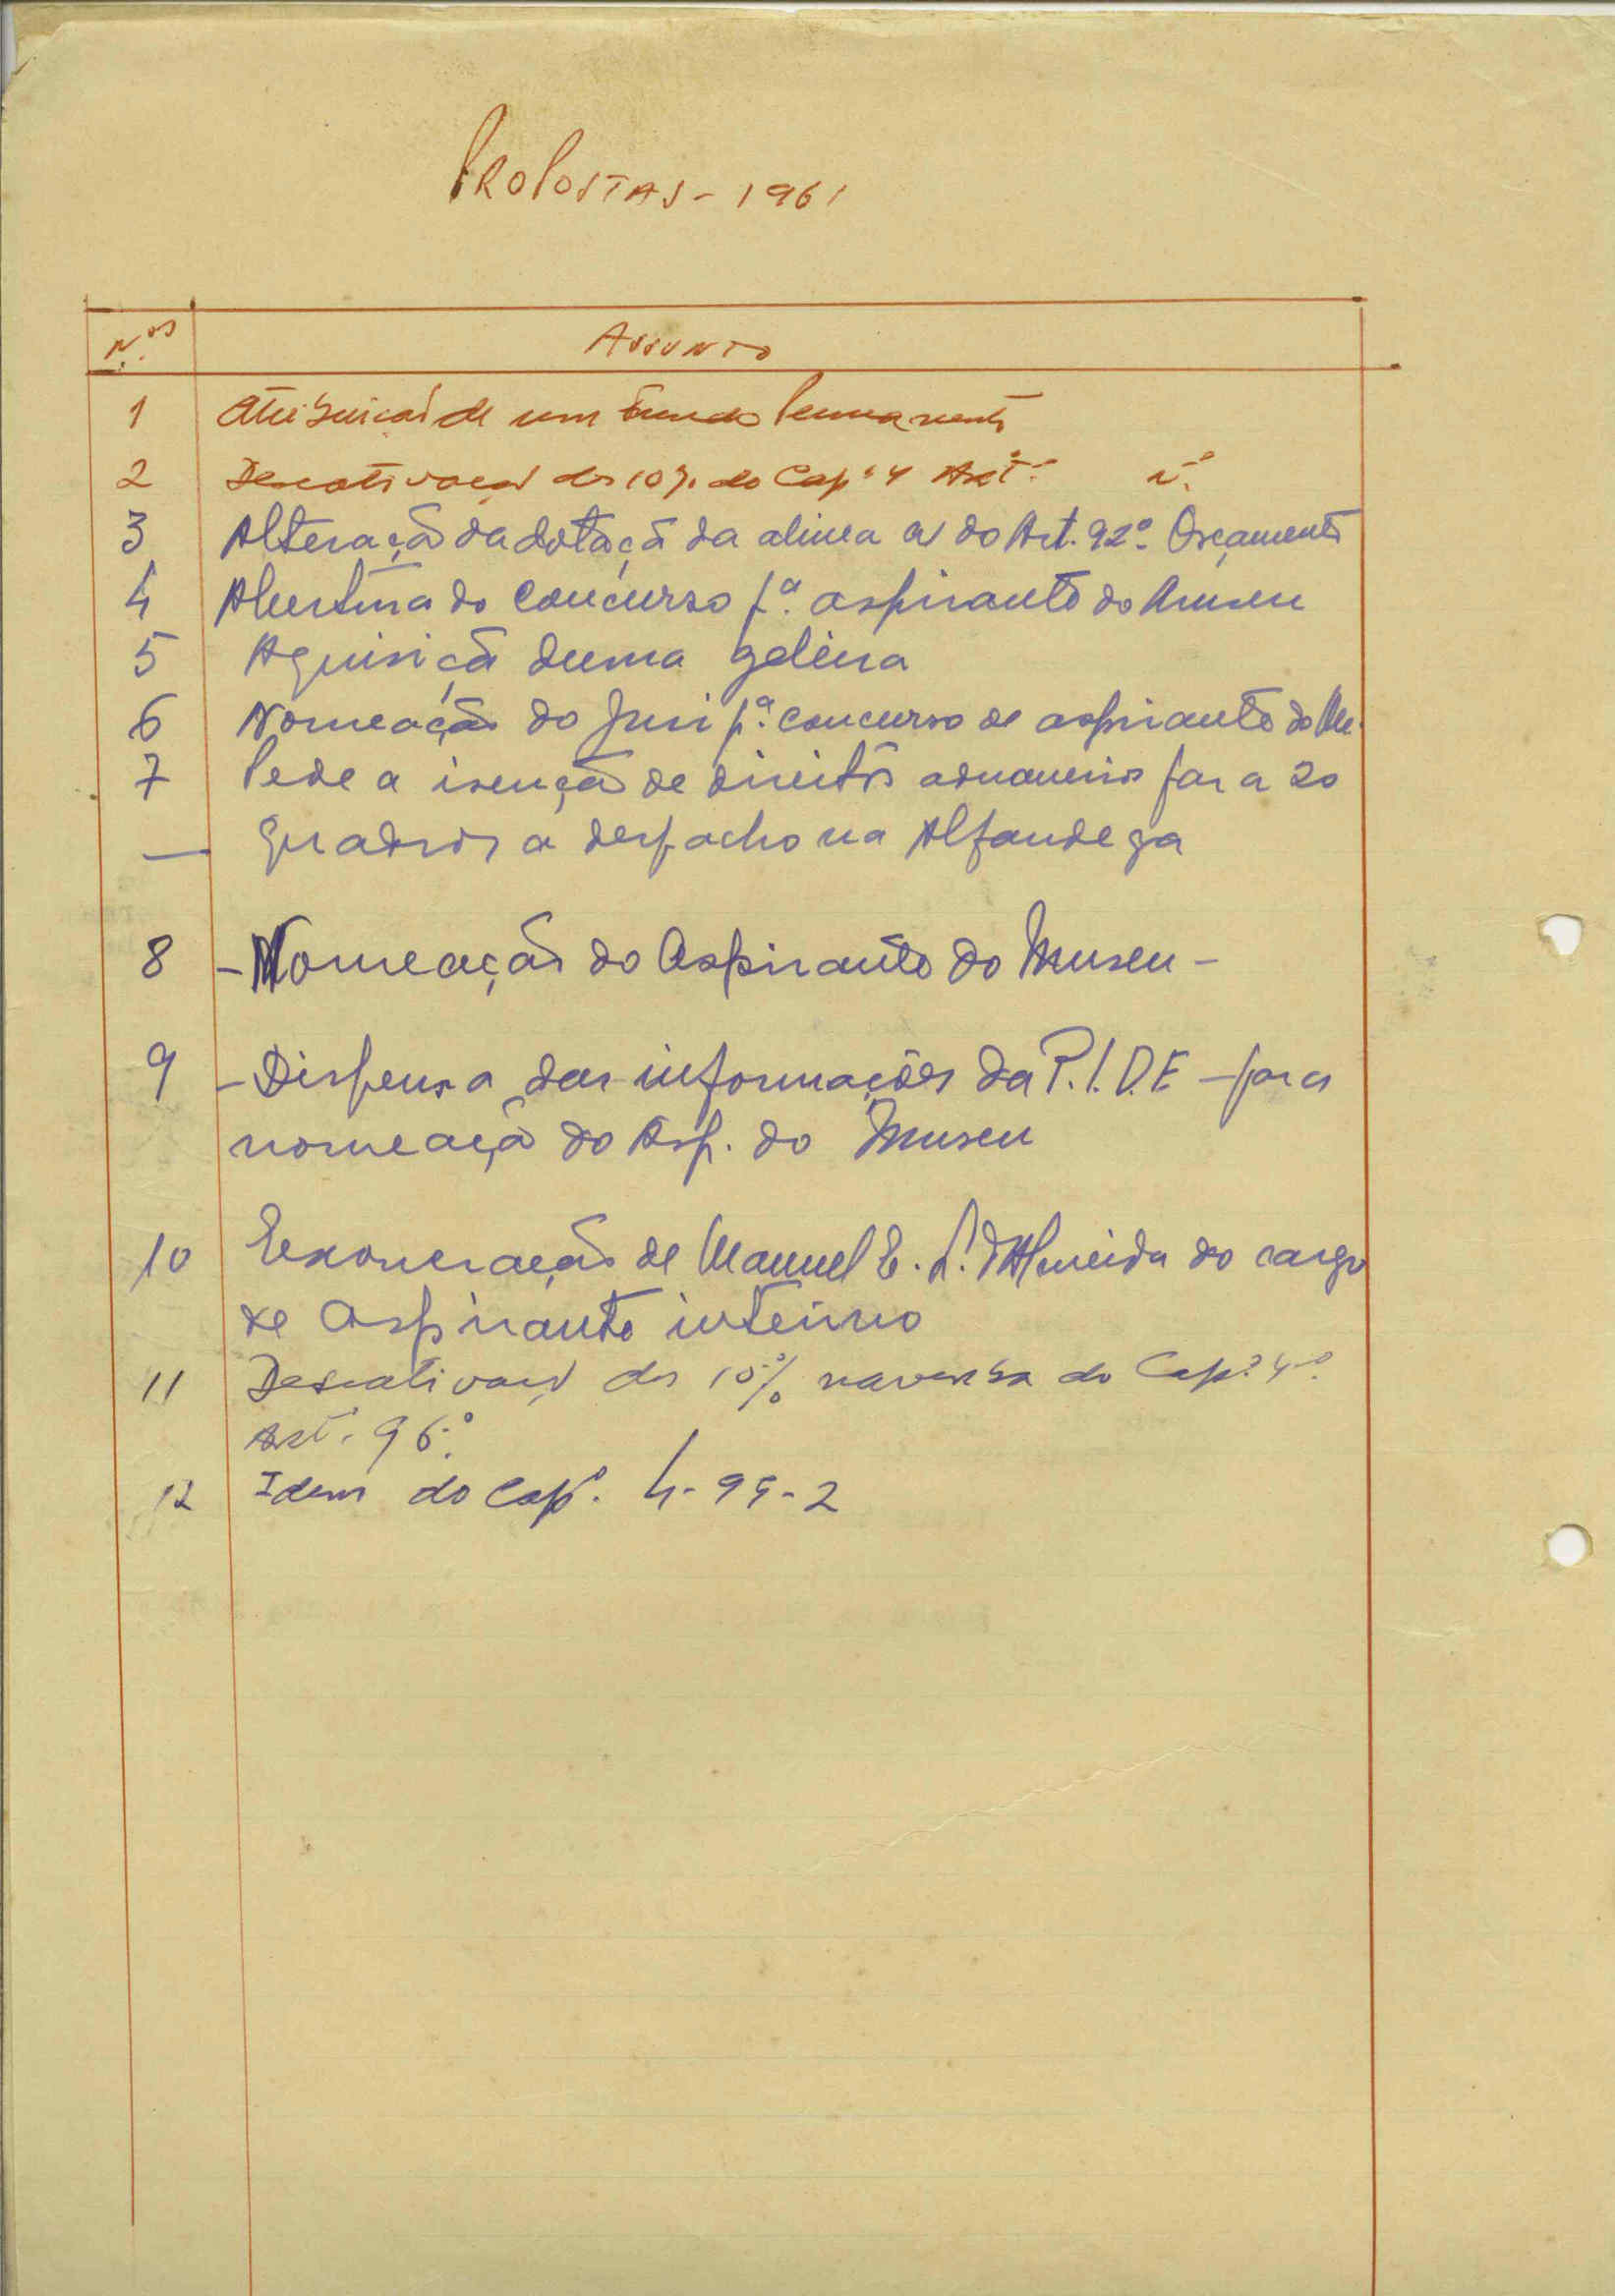 PROPOSTAS - 1961
N.os Assunto
1 Atribuição de um Fundo Permanente
2 Descativação dos 10% do Cap.º 4 Art.º n.º
3 Alteração da dotaçã da alinea a) do Art. 92º Orçamento
4 Abertura do concurso p.ª aspirante do Museu
5 Aquisiçã duma geleira
6 Nomeação do Juri p.ª concurso de aspirante do Mu.
7 Pede a isenção de direitos aduaneiros para 20
— Quadros a despacho na Alfandega
8 - Nomeação do Aspirante do Museu -
9 - Dispensa das informações da P.I.D.E - para
nomeaçã do Asp. do Museu
10 Exoneração de Manuel E. L. d'Almeida do cargo
de Aspirante interino
11 Descativação dos 10% na verba do Cap.º 4.º
Art.º 96.º
12 Idem do Cap.º 4-99-2